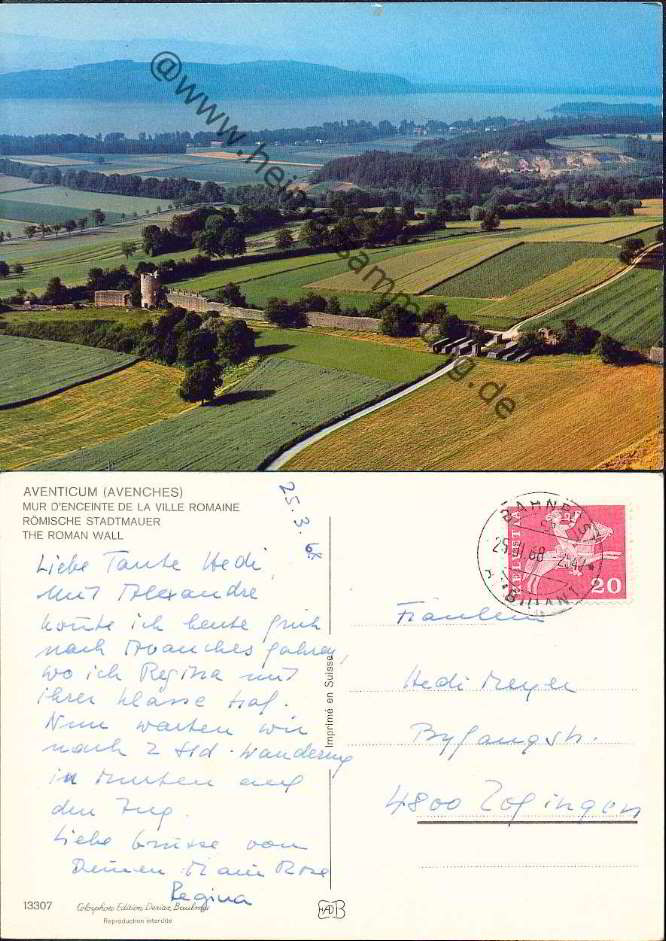 @www.heimatsammlung.de
AVENTICUM (AVENCHES)
MUR D'ENCEINTE DE LA VILLE ROMAINE
RÖMISCHE STADTMAUER
THE ROMAN WALL
25.3.68
Liebe Tante Hedi,
mit Alexandre
konte ich heute früh
nach Avanches fahren,
wo ich Regina mit
ihrer Klasse traf.
Nun warten wir
nach 2 Std. Wanderung
in Murten auf
den Zug.
Liebe Grüsse von
Deinen Marie Rose
Regina
Imprimé en Suisse
BAHNPOST
AMBULANT
HELVETIA
20
Fräulein
Hedi Meyer
Byfangstr.
4800 Zofingen
13307
Colorphoto Edition Deriaz, Baulmes
Reproduction interdite